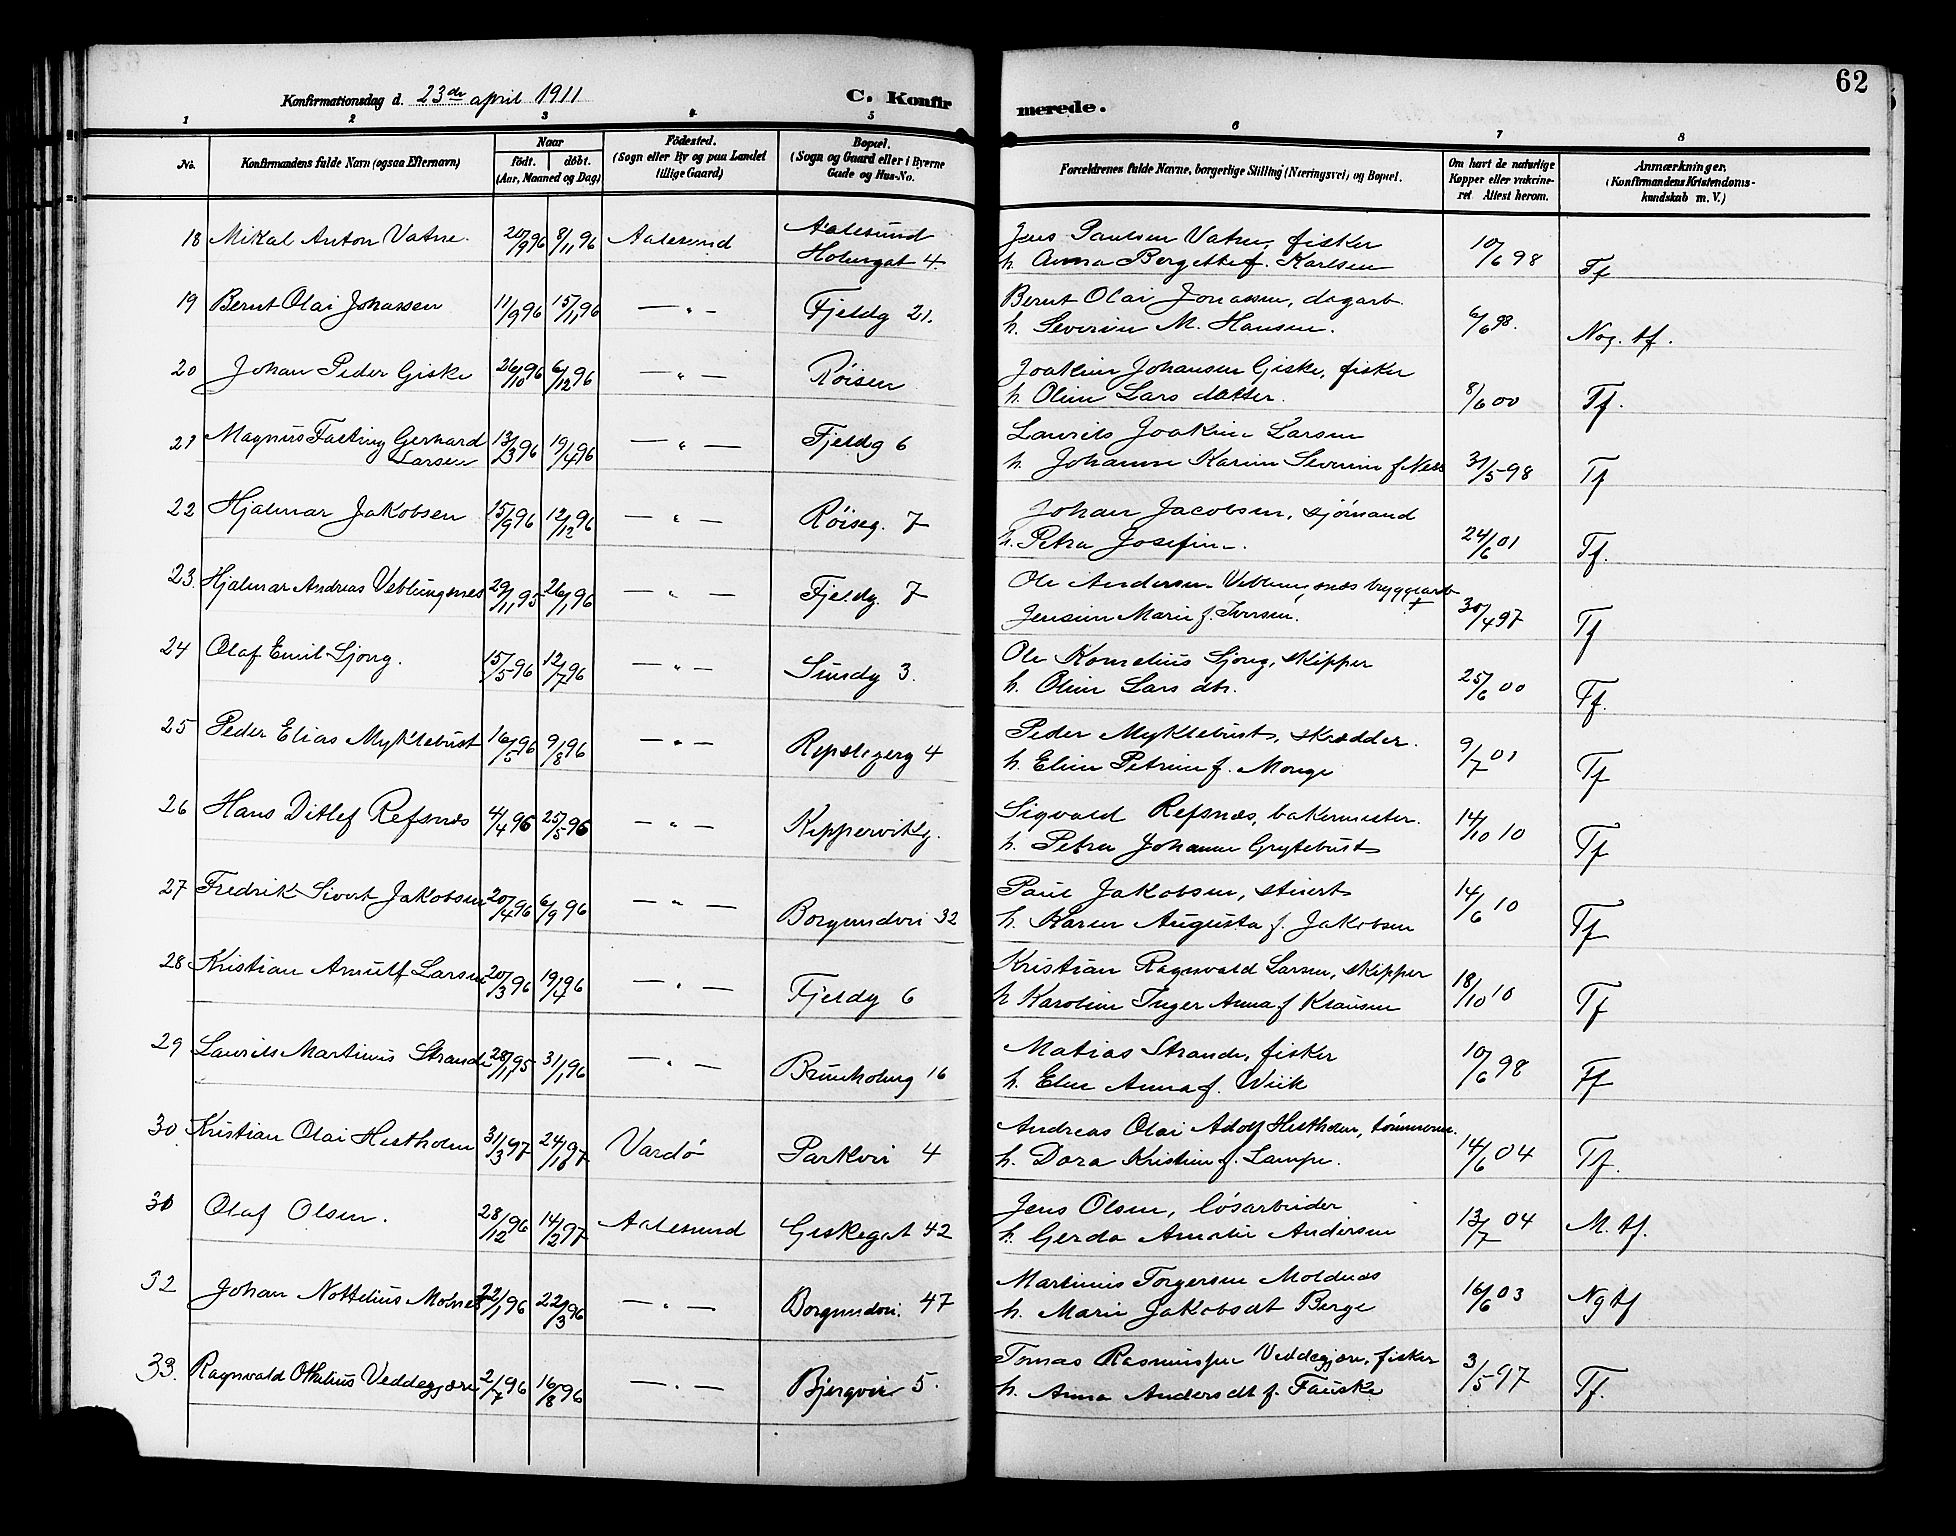 62
Konfirmationsdag d. 23de april 1911
C. Konfirmerede.
1 2 3 4 5 6 7 8
No.
Konfirmandens fulde Navn (ogsaa Efternavn)
Naar
födt. döbt.
(Aar, Maaned og Dag)
Födested.
(Sogn eller By og paa Landet
tillige Gaard)
Bopæl.
(Sogn og Gaard eller i Byerne
Gade og Hus-No.
Forældrenes fulde Navne, borgerlige Stilling (Næringsvei) og Bopæl.
Om havt de naturlige
Kopper eller vakcine-
ret Attest herom.
Anmærkninger,
(Konfirmandens Kristendoms-
kundskab m. V.)
18 Mikal Anton Vatne. 20/9 96 8/11 96 Aalesund Aalesund Holmgat 4. Jens Paulsen Vatne, fisker 10/6 98 Tf
h. Anna Bergette f. Karlsen
19 Bernt Olai Johassen 11/9 96 15/11 96 — " — Fjeldg 21. Bernt Olai Jonassen, dagarb. 6/6 98. Nog. tf.
h. Severine M. Hansen.
20 Johan Peder Giske 26/10 96 6/12 96 — " — Röisen Joakim Johansen Giske, fisker 8/6 00 Tf.
h. Oline Lars datter.
21 Magnus Fasting Gerhard Larsen 13/3 96 19/4 96 — " — Fjeldg 6 Laurits Joakim Larsen 31/5 98 Tf
h. Johanne Karine Severine f Ness
22 Hjalmar Jakobsen 15/9 96 12/12 96 — " — Röiseg. 7 Johan Jacobsen, sjömand 24/6 01 Tf.
h. Petra Josefine.
23. Hjalmar Andreas Veblungsnes 29/11 95 26/1 96 — " — Fjeldg. 7 Ole Andersen Veblungsnæs bryggearb 30/4 97 Tf
Jensine Marie f. Iversen. +
24 Olaf Emil Sjong. 15/5 96 12/7 96 — " — Sundg 3. Ole Kornelius Sjong, skipper 25/6 00 Tf.
h. Oline Lars dtr.
25 Peder Elias Myklebust 16/5 96 9/8 96 — " — Repslagerg 4 Peder Myklebust, skrædder. 9/7 01 Tf
h. Eline Petrine f. Monge
26 Hans Ditlef Refsnæs 4/4 96 25/5 96 — " — Kippervikg. Sigvald Refsnæs, bakermester. 14/10 10 Tf
h. Petra Johanne Grytebust
27 Fredrik Sivert Jakobsen 20/4 96 6/9 96 — " — Borgundvei 32 Paul Jakobsen, stuert 14/6 10 Tf
h. Karen Augusta f. Jakobsen
28 Kristian Arnulf Larsen 20/3 96 19/4 96 — " — Fjeldg 6 Kristian Ragnvald Larsen, skipper 18/10 10 Tf
h Karoline Inger Anna f Klausen
29 Laurits Martinus Strande 28/11 95 31/1 96 — " — Brunholmg 16 Matias Strande, fisker 10/6 98 Tf
h. Eline Anna f. Wiik
30. Kristian Olai Hestholm 31/3 97 24/10 97 Vardö Parkvei 4 Andreas Olai Adolf Hestholm, tömmerm. 14/6 04 Tf.
h. Dora Kristine f. Lampe.
31 Olaf Olsen. 28/12 96 14/2 97 Aalesund Giskegat 42 Jens Olsen, lösarbeider 13/7 04 M. tf.
h. Gerda Amalie Andersen
32 Johan Nottelius Molnes 22/1 96 22/3 96 — " — Borgundvei. 47 Martinus Torgersen Moldnæs 16/6 03 Ng tf
h. Marie Jakobsdt Berge
33. Ragnvald Othelius Veddegjære 2/7 96 16/8 96 — " — Bjergvei 5. Tomas Rasmussen Veddegjære, fisker 3/5 97 Tf.
h. Anna Andersdt f. Fauske